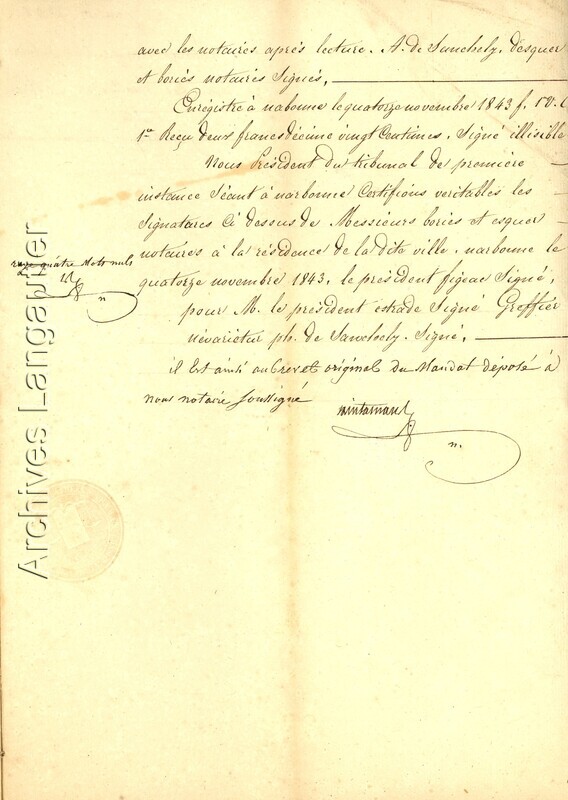 avec les notaires après lecture. A. de Sanchely, d'esquer
et boriés notaires Signés,
Enregistré à nabonne le quatorze novembre 1843 f. 10
1ce Reçu deux francs décime vingt Centimes. Signé illisible
Nous Président du tribunal de première
instance Séant à narbonne Certifions veritables les
Signatures Ci dessus de Messieurs bories et esquer
notaires à la résidence de la dite ville. narbonne le
quatorze novembre 1843. le président figeac Signé,
pour M. le président estrade Signé Greffier
névarietur ph. de Sanchely. Signé,
il Est ainsi au brevet original du Mandat déposé à
nous notaire soussigné
rayé quatre Mots nuls
Archives Langautier